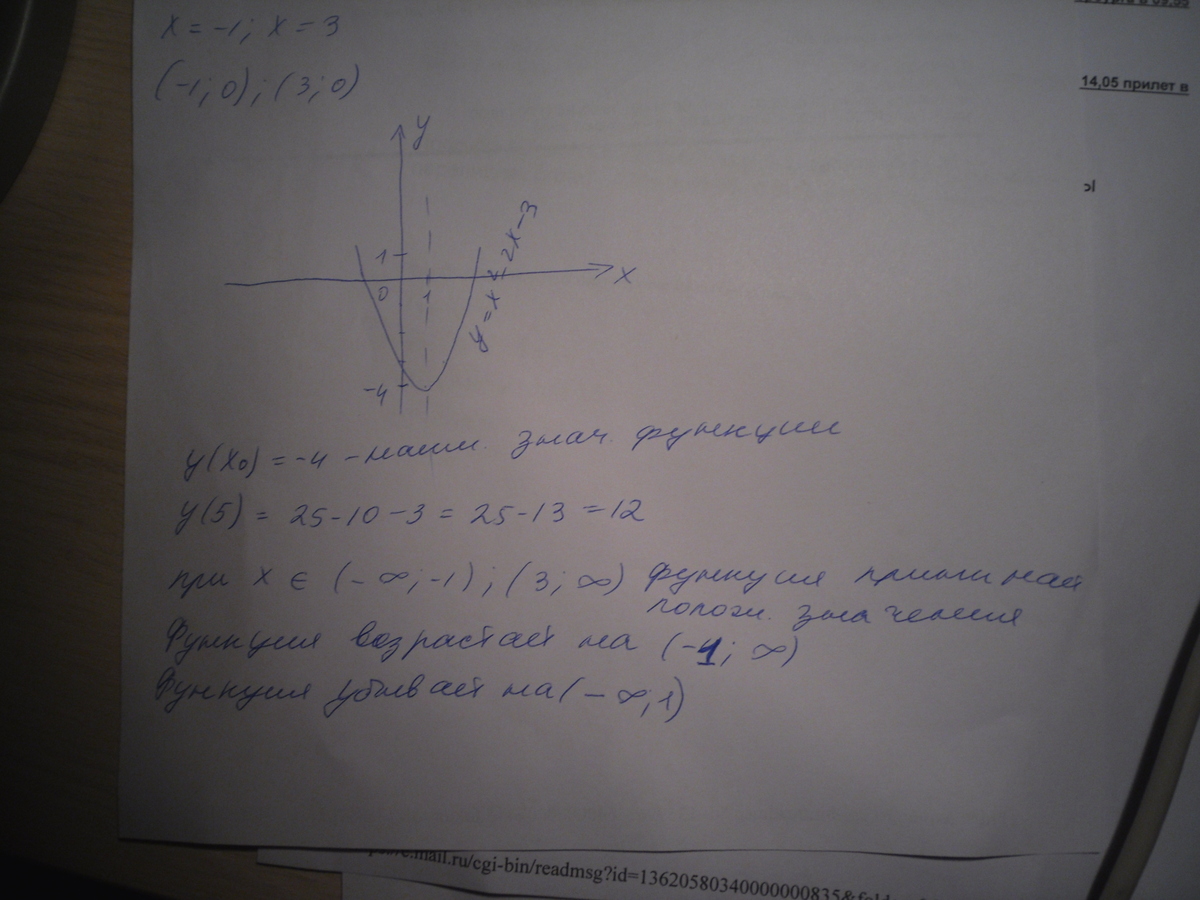 x = -1; x = 3
(-1; 0); (3; 0)
14,05 прилет в
y
y = x² - 2x - 3
1
x
0
1
-4
y(x₀) = -4 - наим. знач. функции
y(5) = 25-10-3 = 25-13 = 12
при x ∈ (-∞; -1); (3; ∞) функция принимает
полож. значения
Функция возрастает на (-1; ∞)
Функция убывает на (-∞; 1)
mail.ru/cgi-bin/readmsg?id=13620580340000000835&fold